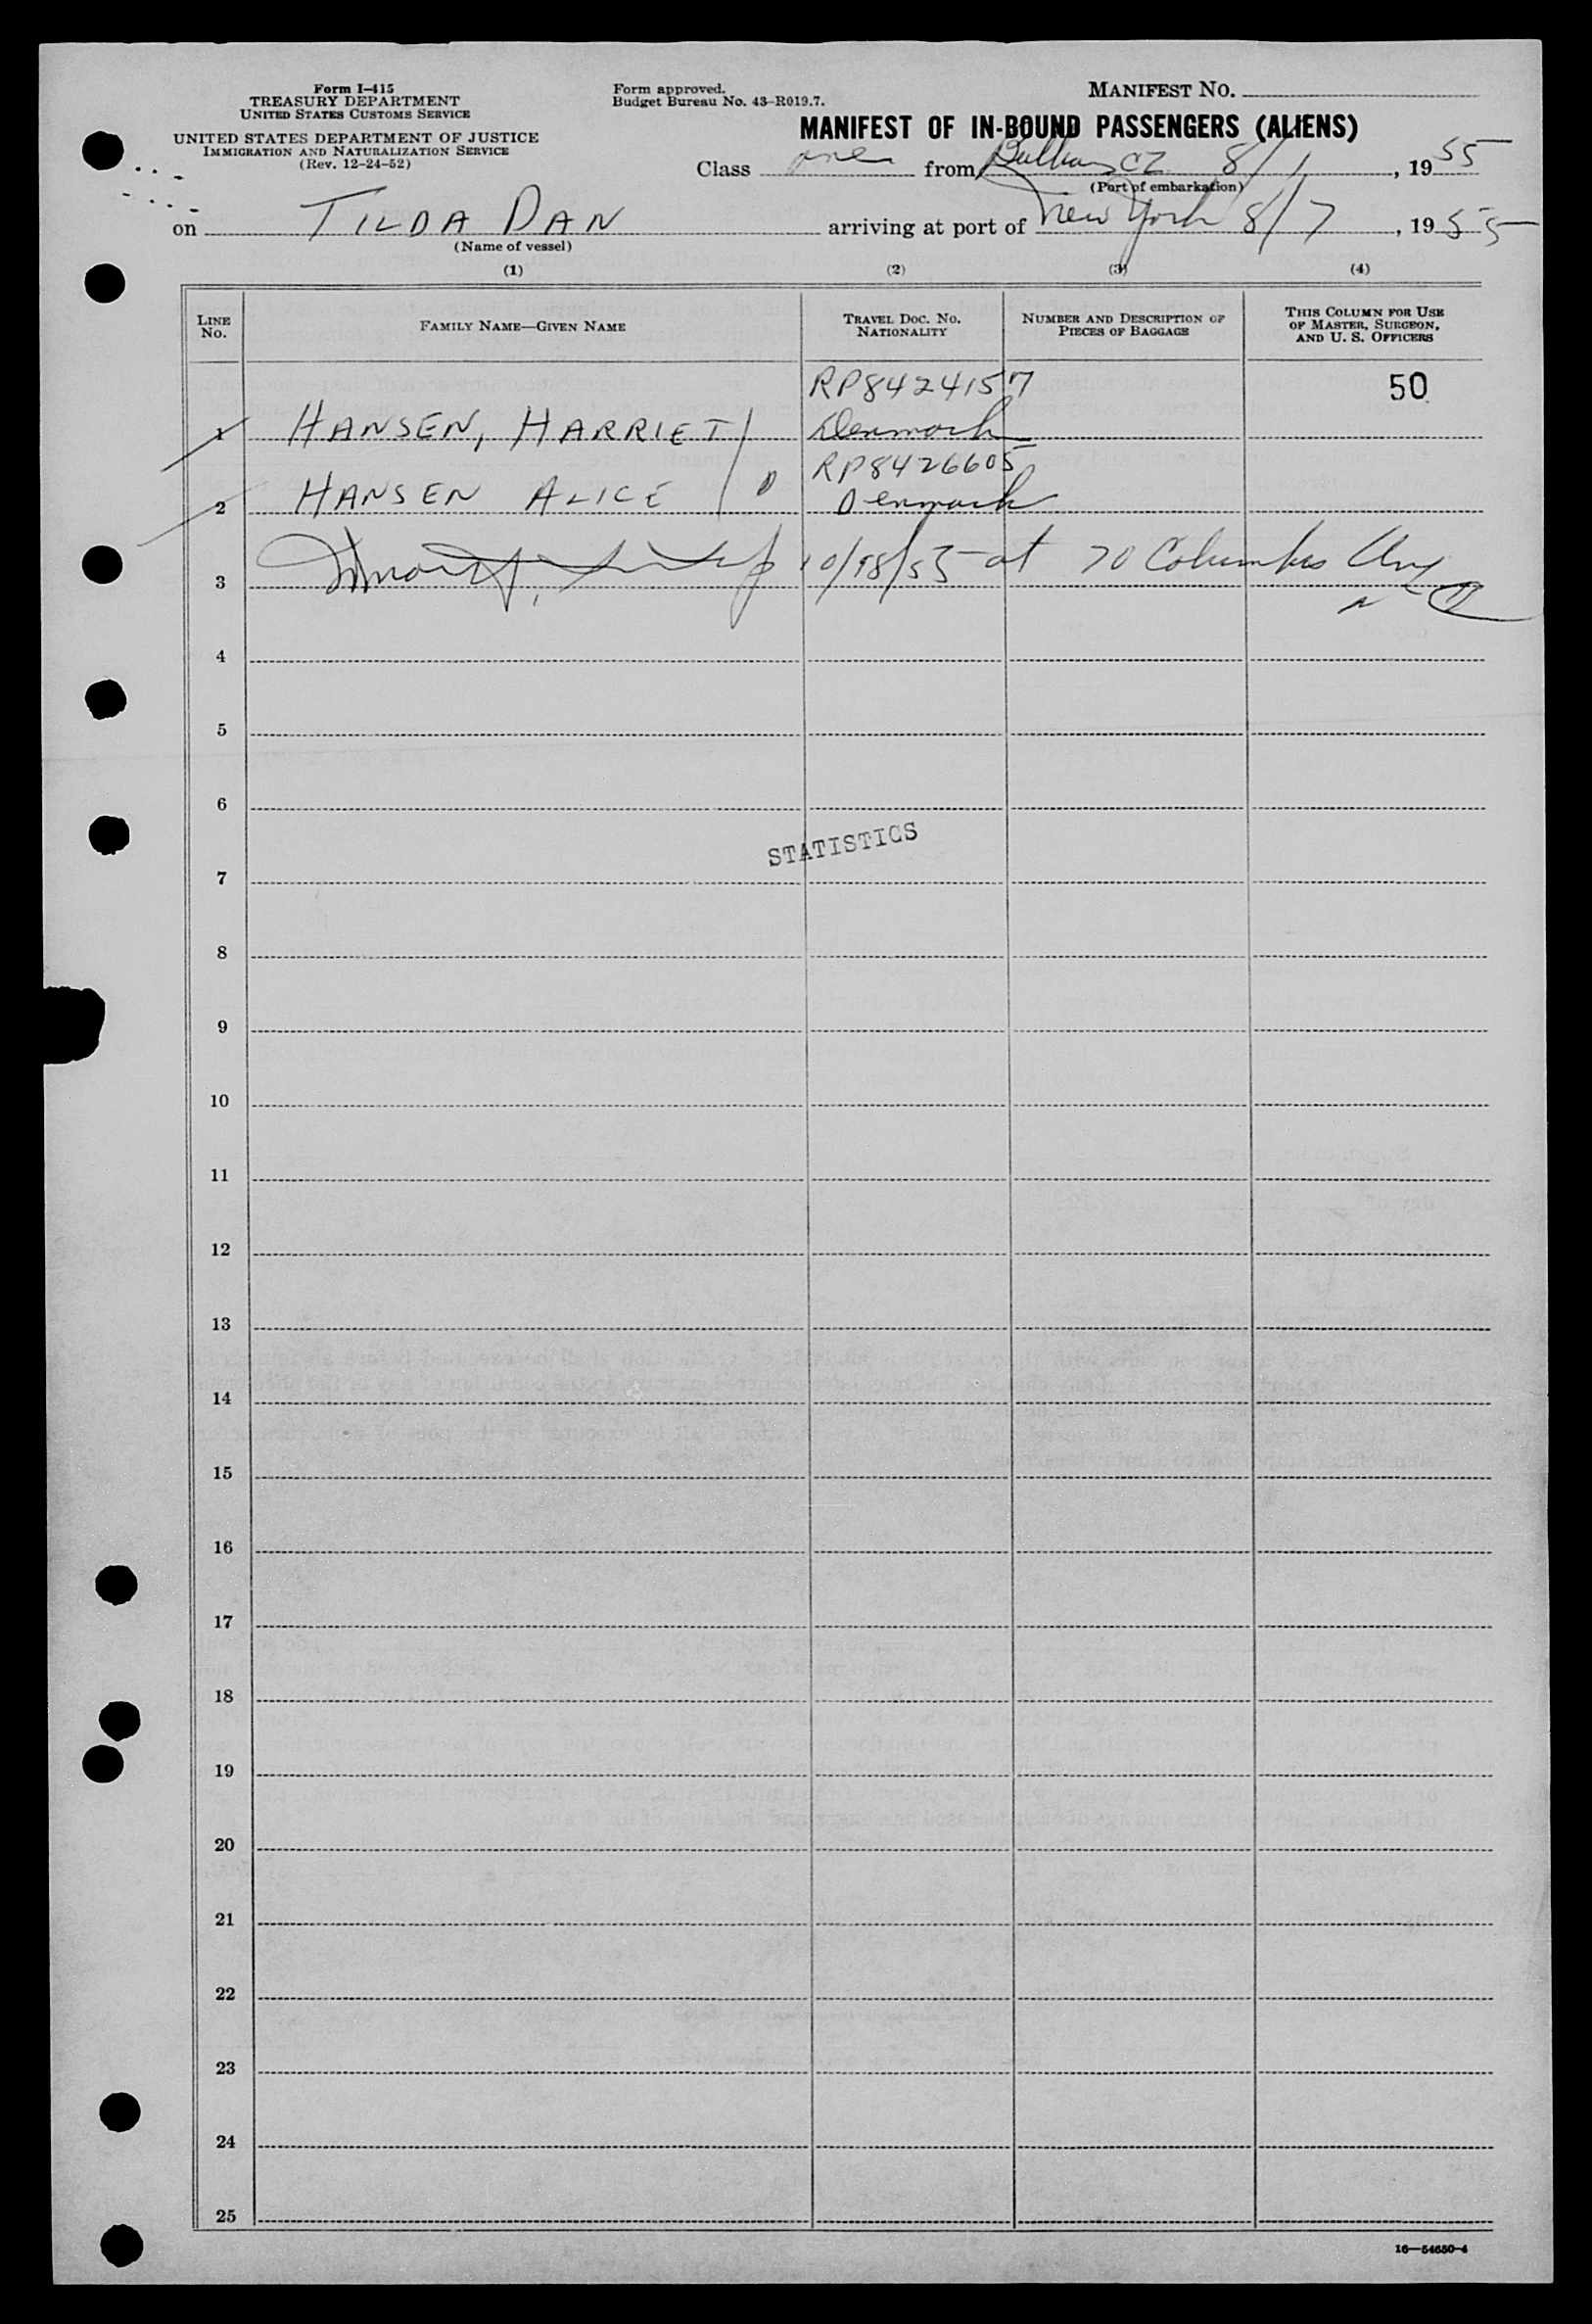 Form I-415
TREASURY DEPARTMENT
UNITED STATES CUSTOMS SERVICE
UNITED STATES DEPARTMENT OF JUSTICE
IMMIGRATION AND NATURALIZATION SERVICE
(Rev. 12-24-52)
Form approved.
Budget Bureau No. 43-R019.7.
MANIFEST NO.
MANIFEST OF IN-BOUND PASSENGERS (ALIENS)
Class from CZ 8/1, 1955
(Port of embarkation)
on TILDA DAN arriving at port of New York 8/7, 1955
(Name of vessel)
(1) (2) (3) (4)
LINE No. FAMILY NAME—GIVEN NAME TRAVEL DOC. NO. NATIONALITY NUMBER AND DESCRIPTION OF PIECES OF BAGGAGE THIS COLUMN FOR USE OF MASTER, SURGEON, AND U. S. OFFICERS
RP8424157 50
1 HANSEN, HARRIET Denmark
RP8426605
2 HANSEN ALICE Denmark
3 at 70 Columbus Ave
4
5
6
STATISTICS
7
8
9
10
11
12
13
14
15
16
17
18
19
20
21
22
23
24
25
16—54650-4